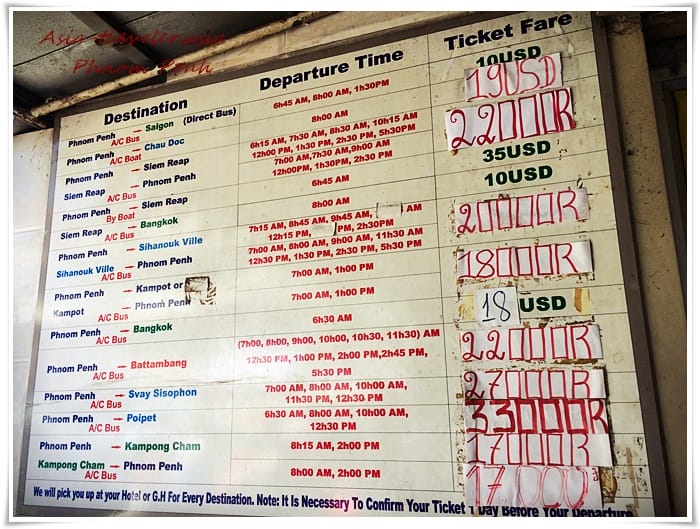 Asia Travelerasia
Phnom Penh
Destination Departure Time Ticket Fare
Phnom Penh → Saigon (Direct Bus) 6h45 AM, 8h00 AM, 1h30PM 10USD
A/C Bus
19USD
Phnom Penh → Chau Doc 8h00 AM
A/C Boat
22000R
Phnom Penh → Siem Reap 6h15 AM, 7h30 AM, 8h30 AM, 10h15 AM
A/C Bus 12h00 PM, 1h30 PM, 2h30 PM, 5h30PM
Siem Reap → Phnom Penh 7h00 AM,7h30 AM,9h00 AM
A/C Bus 12h00PM, 1h30PM, 2h30 PM
Phnom Penh → Siem Reap 6h45 AM 35USD
By Boat
Siem Reap → Bangkok 8h00 AM 10USD
A/C Bus
Phnom Penh → Sihanouk Ville 7h15 AM, 8h45 AM, 9h45 AM, AM 20000R
A/C Bus 12h15 PM, PM, 2h30PM
Sihanouk Ville → Phnom Penh 7h00 AM, 8h00 AM, 9h00 AM, 11h30 AM
A/C Bus 12h30 PM, 1h30 PM, 2h30 PM, 5h30 PM
Phnom Penh → Kampot or 7h00 AM, 1h00 PM 18000R
A/C Bus
Kampot → Phnom Penh 7h00 AM, 1h00 PM
A/C Bus
Phnom Penh → Bangkok 6h30 AM 18 USD
A/C Bus
Phnom Penh → Battambang (7h00, 8h00, 9h00, 10h00, 10h30, 11h30) AM 22000R
A/C Bus 12h30 PM, 1h00 PM, 2h00 PM,2h45 PM,
5h30 PM
Phnom Penh → Svay Sisophon 7h00 AM, 8h00 AM, 10h00 AM, 27000R
A/C Bus 11h30 PM, 12h30 PM
Phnom Penh → Poipet 6h30 AM, 8h00 AM, 10h00 AM, 33000R
A/C Bus 12h30 PM
Phnom Penh → Kampong Cham 8h15 AM, 2h00 PM 17000R
A/C Bus
Kampong Cham → Phnom Penh 8h00 AM, 2h00 PM 17000
A/C Bus
We will pick you up at your Hotel or G.H For Every Destination. Note: It Is Necessary To Confirm Your Ticket 1 Day Before Your Departure